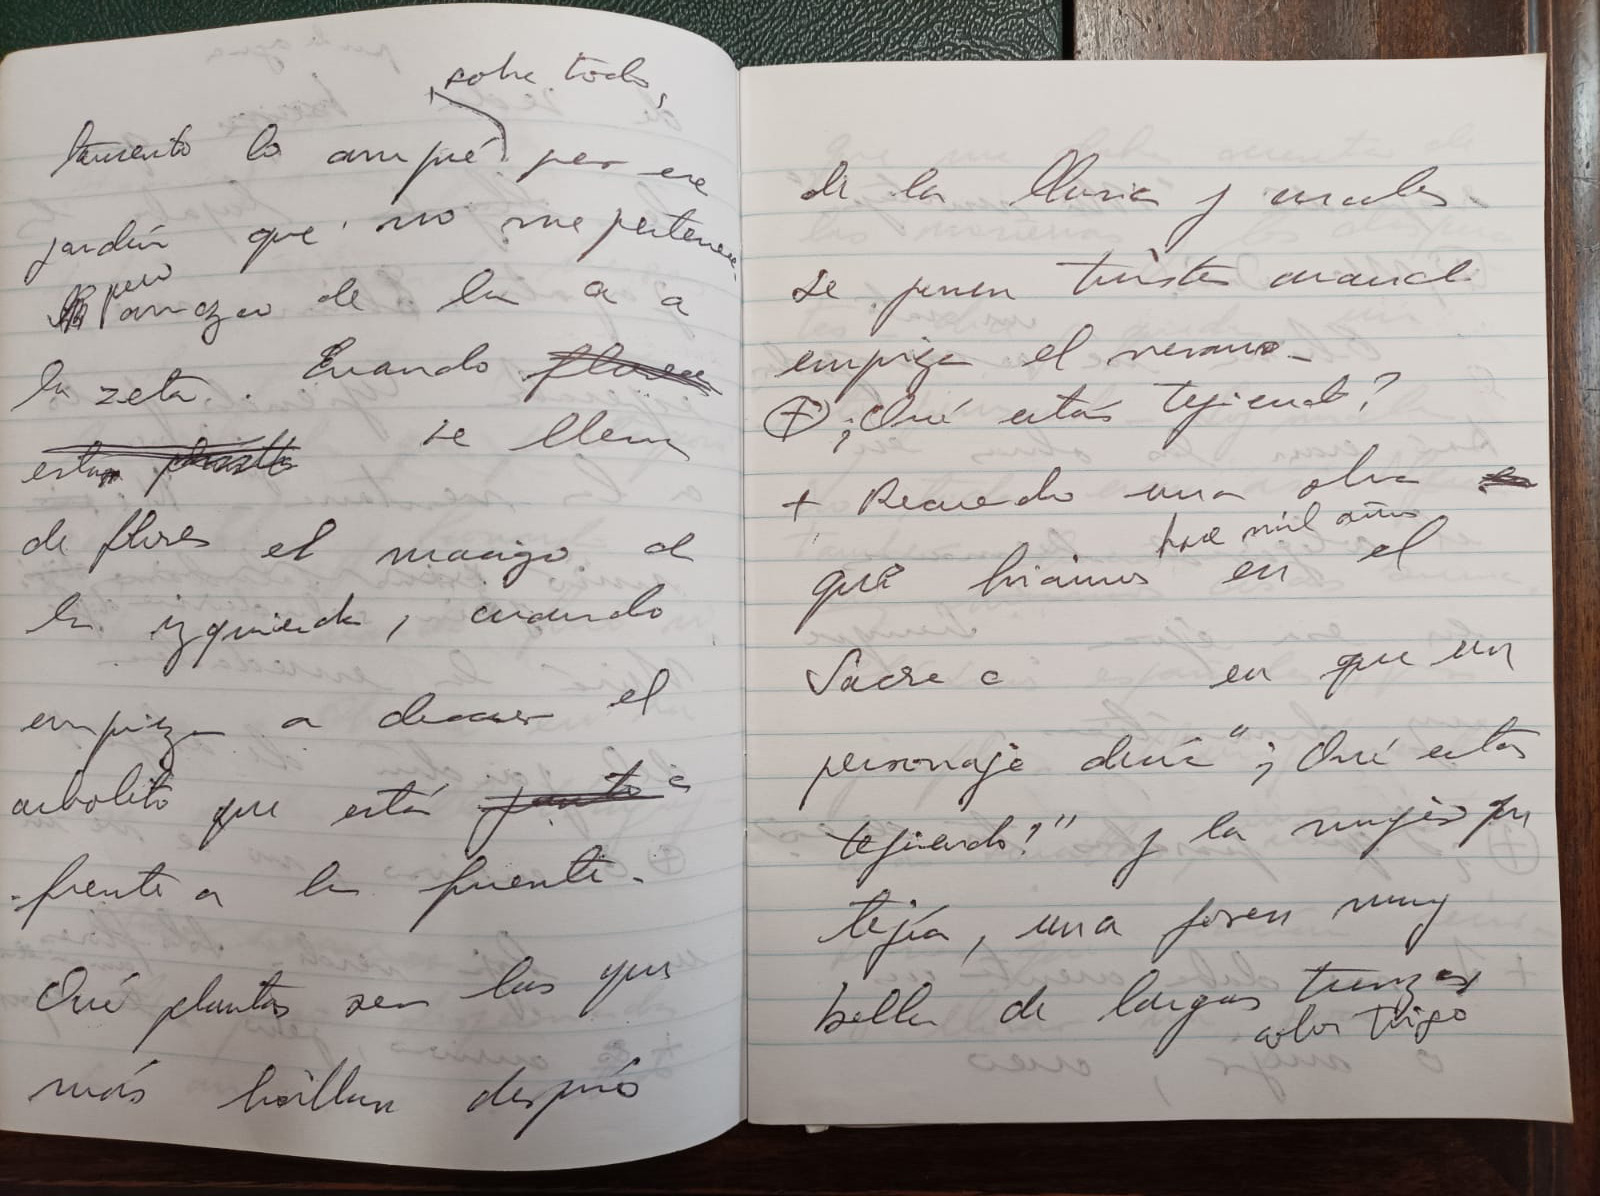 sobre todo,
lamento lo am por ese
jardín que no me pertenece
pero conozco de la a a
la zeta. Cuando florecen
estas plantas se llena
de flores el macizo de
la izquierda, cuando
empieza a decaer el
arbolito que está junto a
frente a la fuente.
Qué plantas son las que
más brillan después
de la lluvia y cuales
se ponen tristes cuando
empieza el verano.
⊕ ¿Qué estás tejiendo?
+ Recuerdo una obra
hace mil años
que hicimos en el
Sacre C en que un
personaje decía "¿Qué estás
tejiendo?" y la mujer que
tejía, una joven muy
bella de largas trenzas
color trigo